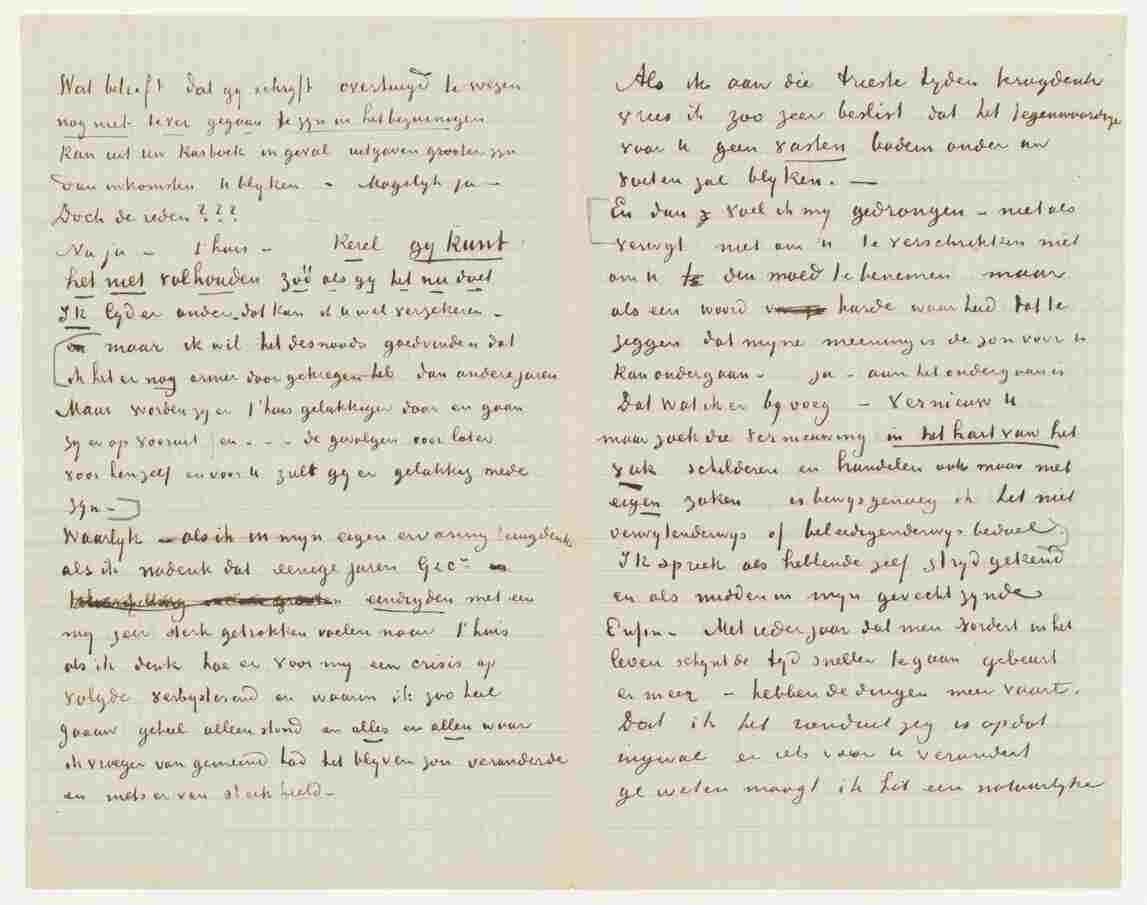 Wat betreft dat gy schryft overtuigd te wezen
nog niet te ver gegaan te zyn in het bezuinigen
kan uit uw kasboek in geval uitgaven grooter zyn
dan inkomsten 't blyken – Mogelyk ja –
Doch de reden???
Nu ja – t'huis – Kerel gy kunt
het niet volhouden zóó als gy het nu doet
Ik lyd er onder, dat kan ik u wel verzekeren –
en maar ik wil het desnoods goedvinden dat
ik het er nog armer door gekregen heb dan andere jaren
Maar worden zy er t'huis gelukkiger door en gaan
zy er op vooruit en - - - de gevolgen voor later
voor henzelf en voor u zult gy er gelukkig mede
zyn –
Waarlyk – als ik in myn eigen ervaring terugdenk
als ik nadenk dat eenige jaren G&Cie –
eindigden met een
my zeer sterk getrokken voelen naar t'huis
als ik denk hoe er voor my een crisis op
volgde verbysterend en waarin ik zoo heel
gaauw geheel alleen stond en alles en allen waar
ik vroeger van gemeend had het blyven zou veranderde
en niets er van steek hield –
Als ik aan die trieste tyden terugdenk
vrees ik zoo zeer beslist dat het tegenwoordige
voor u geen vasten bodem onder uw
voeten zal blyken. —
En dan voel ik my gedrongen – niet als
verwyt niet om u te verschrikken niet
om u den moed te benemen maar
als een woord harde waarheid dat te
zeggen dat myne meening is de zon voor u
kan ondergaan – ja – aan het ondergaan is
Dat wat ik er by voeg – vernieuw u
maar zoek die vernieuwing in het hart van het
vak schilderen en handelen ook maar met
eigen zaken is bewys genoeg ik het niet
verwytenderwys of beleedigenderwys bedoel.
Ik spreek als hebbende zelf stryd gekend
en als midden in myn gevecht zynde
Enfin – Met ieder jaar dat men vordert in het
leven schynt de tyd sneller te gaan gebeurt
er meer – hebben de dingen meer vaart.
Dat ik het ronduit zeg is opdat
ingeval er iets voor u verandert
ge weten moogt ik het een natuurlyke